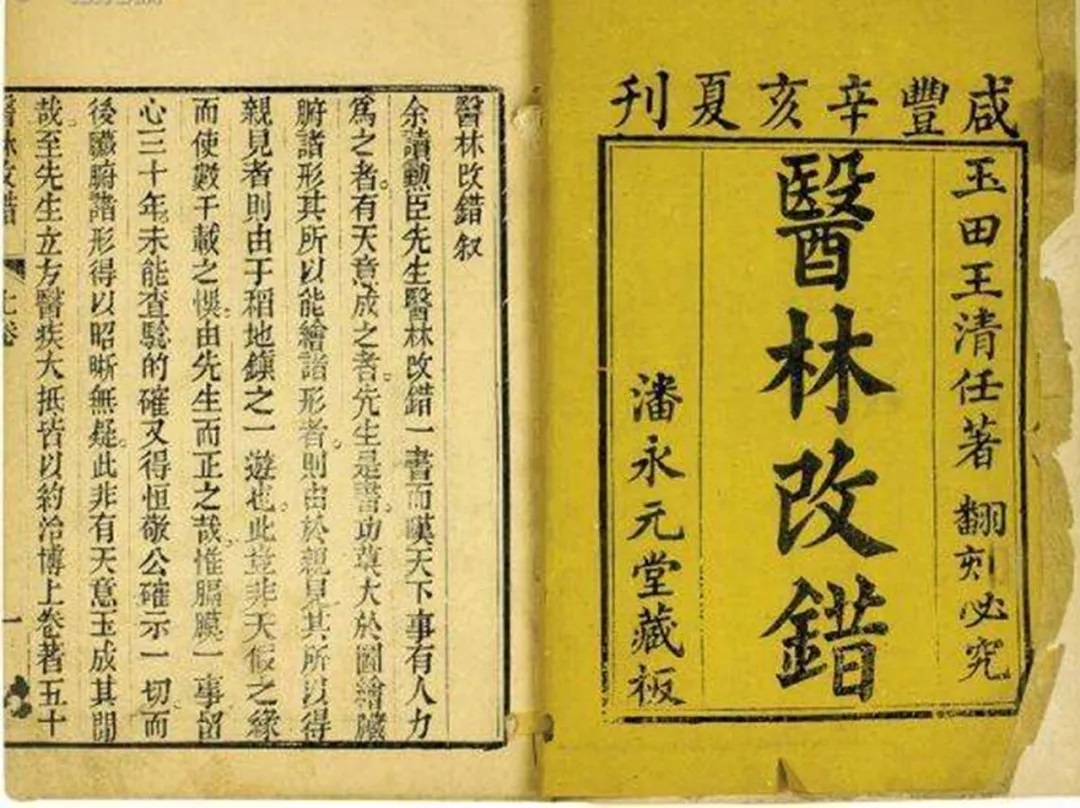 咸豐辛亥夏刊
玉田王清任著 翻刻必究
醫林改錯
潘永元堂藏板
醫林改錯叙
余讀勳臣先生醫林改錯一書而嘆天下事有人力
爲之者有天意成之者先生是書功莫大於圖繪臟
腑諸形其所以能繪諸形者則由於親見其所以得
親見者則由于稻地鎭之一遊也此豈非天假之緣
而使數千載之悞由先生而正之哉惟膈膜一事留
心三十年未能查驗的確又得恒敬公確示一切而
後臟腑諸形得以昭晰無疑此非有天意玉成其間
哉至先生立方醫疾大抵皆以約治博上卷著五十
醫林改錯
上卷
一